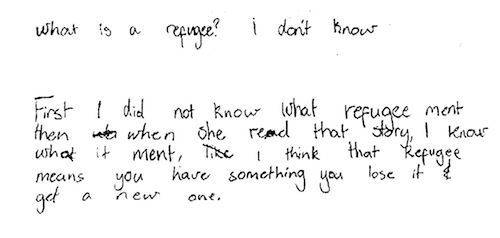 what is a refugee? I don't know
First I did not know what refugee ment
then when she read that story, I know
what it ment, I think that Refugee
means you have something you lose it &
get a new one.